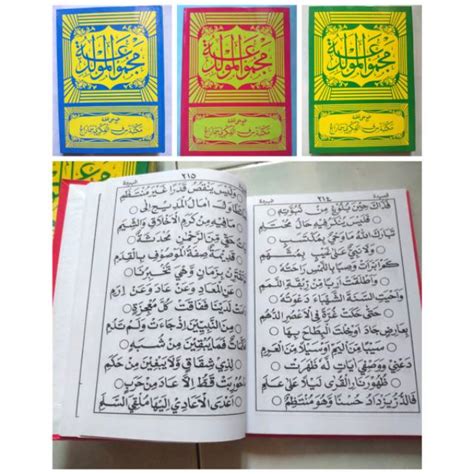 مجموعة الموالد
طبع على نفقة
مجموعة الموالد
طبع على نفقة
مجموعة الموالد
طبع على نفقة
٢١٤ قصيدة
فَذَاكَ حِينَ بُلُوغٍ مِنْ نُبُوَّتِهِ
فَلَيْسَ يُنْكَرُ فِيهِ حَالُ مُحْتَلِمِ
تَبَارَكَ اللهُ مَا وَحْيٌ بِمُكْتَسَبٍ
وَلَا نَبِيٌّ عَلَى غَيْبٍ بِمُتَّهَمِ
كَمْ أَبْرَأَتْ وَصِبًا بِاللَّمْسِ رَاحَتُهُ
وَأَطْلَقَتْ أَرِبًا مِنْ رِبْقَةِ اللَّمَمِ
وَأَحْيَتِ السَّنَةَ الشَّهْبَاءَ دَعْوَتُهُ
حَتَّى حَكَتْ غُرَّةً فِي الْأَعْصُرِ الدُّهُمِ
بِعَارِضٍ جَادَ أَوْ خِلْتَ الْبِطَاحَ بِهَا
سَيْبًا مِنَ الْيَمِّ أَوْ سَيْلًا مِنَ الْعَرِمِ
دَعْنِي وَوَصْفِيَ آيَاتٍ لَهُ ظَهَرَتْ
ظُهُورَ نَارِ الْقِرَى لَيْلًا عَلَى عَلَمِ
فَالدُّرُّ يَزْدَادُ حُسْنًا وَهُوَ مُنْتَظِمٌ
قصيدة ٢١٥
وَلَيْسَ يَنْقُصُ قَدْرًا غَيْرَ مُنْتَظِمِ
فَمَا تَطَاوُلُ آمَالِ الْمَدِيحِ إِلَى
مَا فِيهِ مِنْ كَرَمِ الْأَخْلَاقِ وَالشِّيَمِ
آيَاتُ حَقٍّ مِنَ الرَّحْمٰنِ مُحْدَثَةٌ
قَدِيمَةٌ صِفَةُ الْمَوْصُوفِ بِالْقِدَمِ
لَمْ تَقْتَرِنْ بِزَمَانٍ وَهْيَ تُخْبِرُنَا
عَنِ الْمَعَادِ وَعَنْ عَادٍ وَعَنْ إِرَمِ
دَامَتْ لَدَيْنَا فَفَاقَتْ كُلَّ مُعْجِزَةٍ
مِنَ النَّبِيِّينَ إِذْ جَاءَتْ وَلَمْ تَدُمِ
مُحَكَّمَاتٌ فَمَا يُبْقِينَ مِنْ شُبَهٍ
لِذِي شِقَاقٍ وَلَا يَبْغِينَ مِنْ حَكَمِ
مَا حُورِبَتْ قَطُّ إِلَّا عَادَ مِنْ حَرَبٍ
أَعْدَى الْأَعَادِي إِلَيْهَا مُلْقِيَ السَّلَمِ